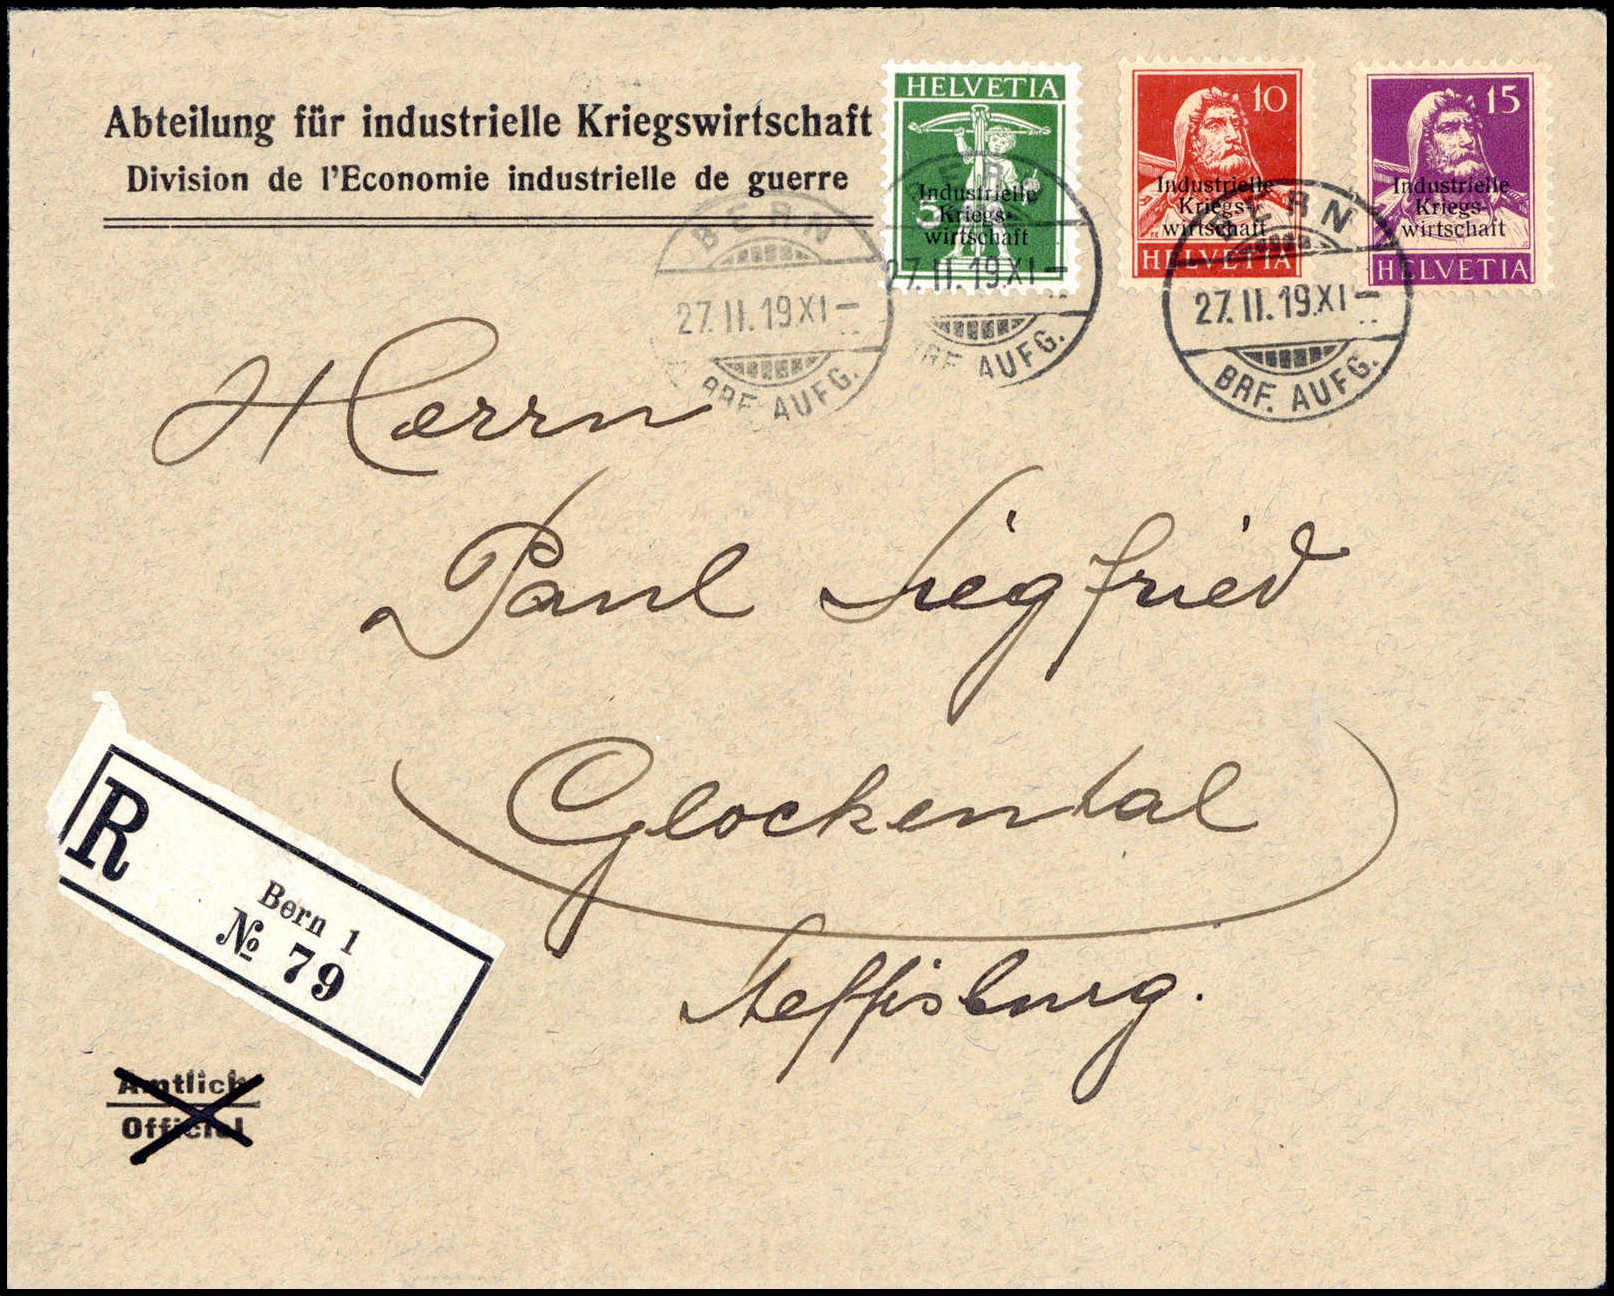 Abteilung für industrielle Kriegswirtschaft
Division de l'Economie industrielle de guerre
HELVETIA
5
Industrielle
Kriegs-
wirtschaft
10
Industrielle
Kriegs-
wirtschaft
HELVETIA
15
Industrielle
Kriegs-
wirtschaft
HELVETIA
BERN
27.II.19.XI-
BRF. AUFG.
BERN
27.II.19.XI-
BRF. AUFG.
BERN
27.II.19.XI-
BRF. AUFG.
Herrn
Paul Siegfried
Glockental
Steffisburg.
R
Bern 1
№ 79
Amtlich
Officiel